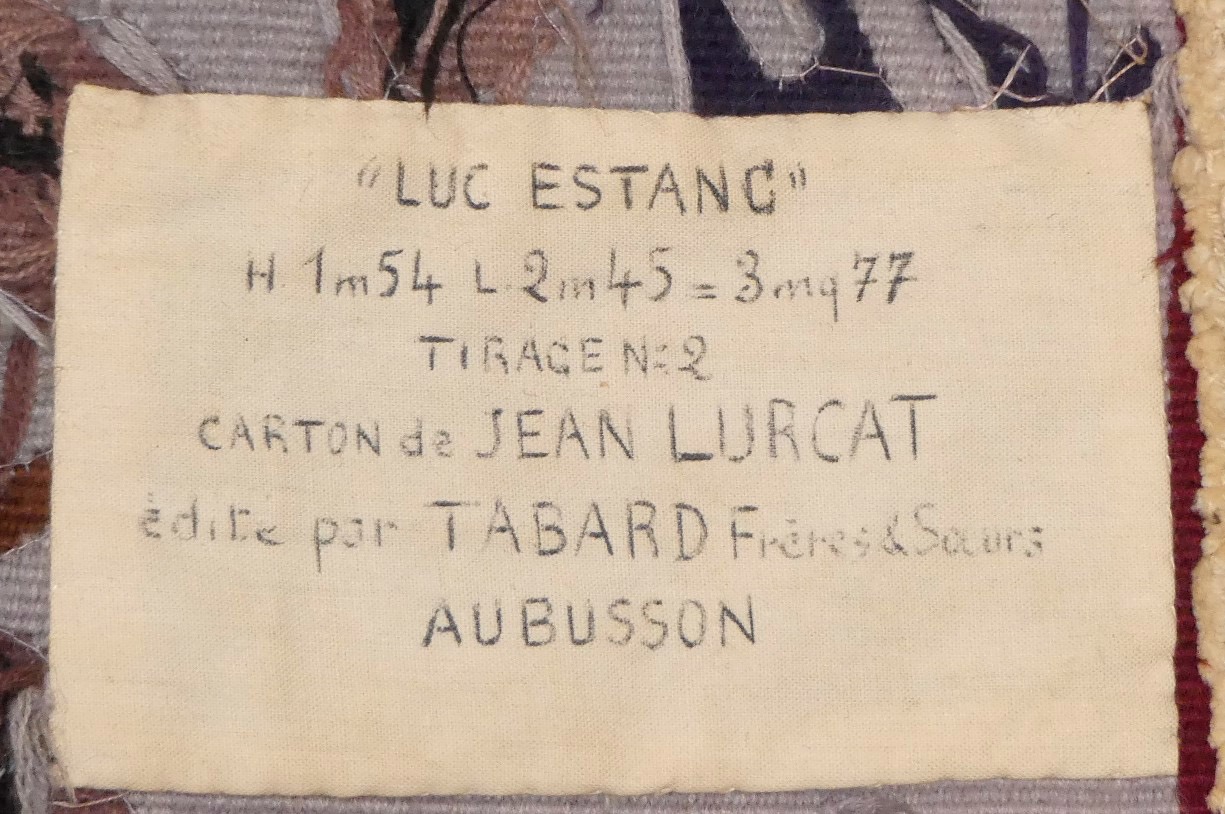 "LUC ESTANG"
H. 1m54 L. 2m45 = 3mq77
TIRAGE N: 2
CARTON de JEAN LURCAT
édité par TABARD Frères & Sœurs
AUBUSSON